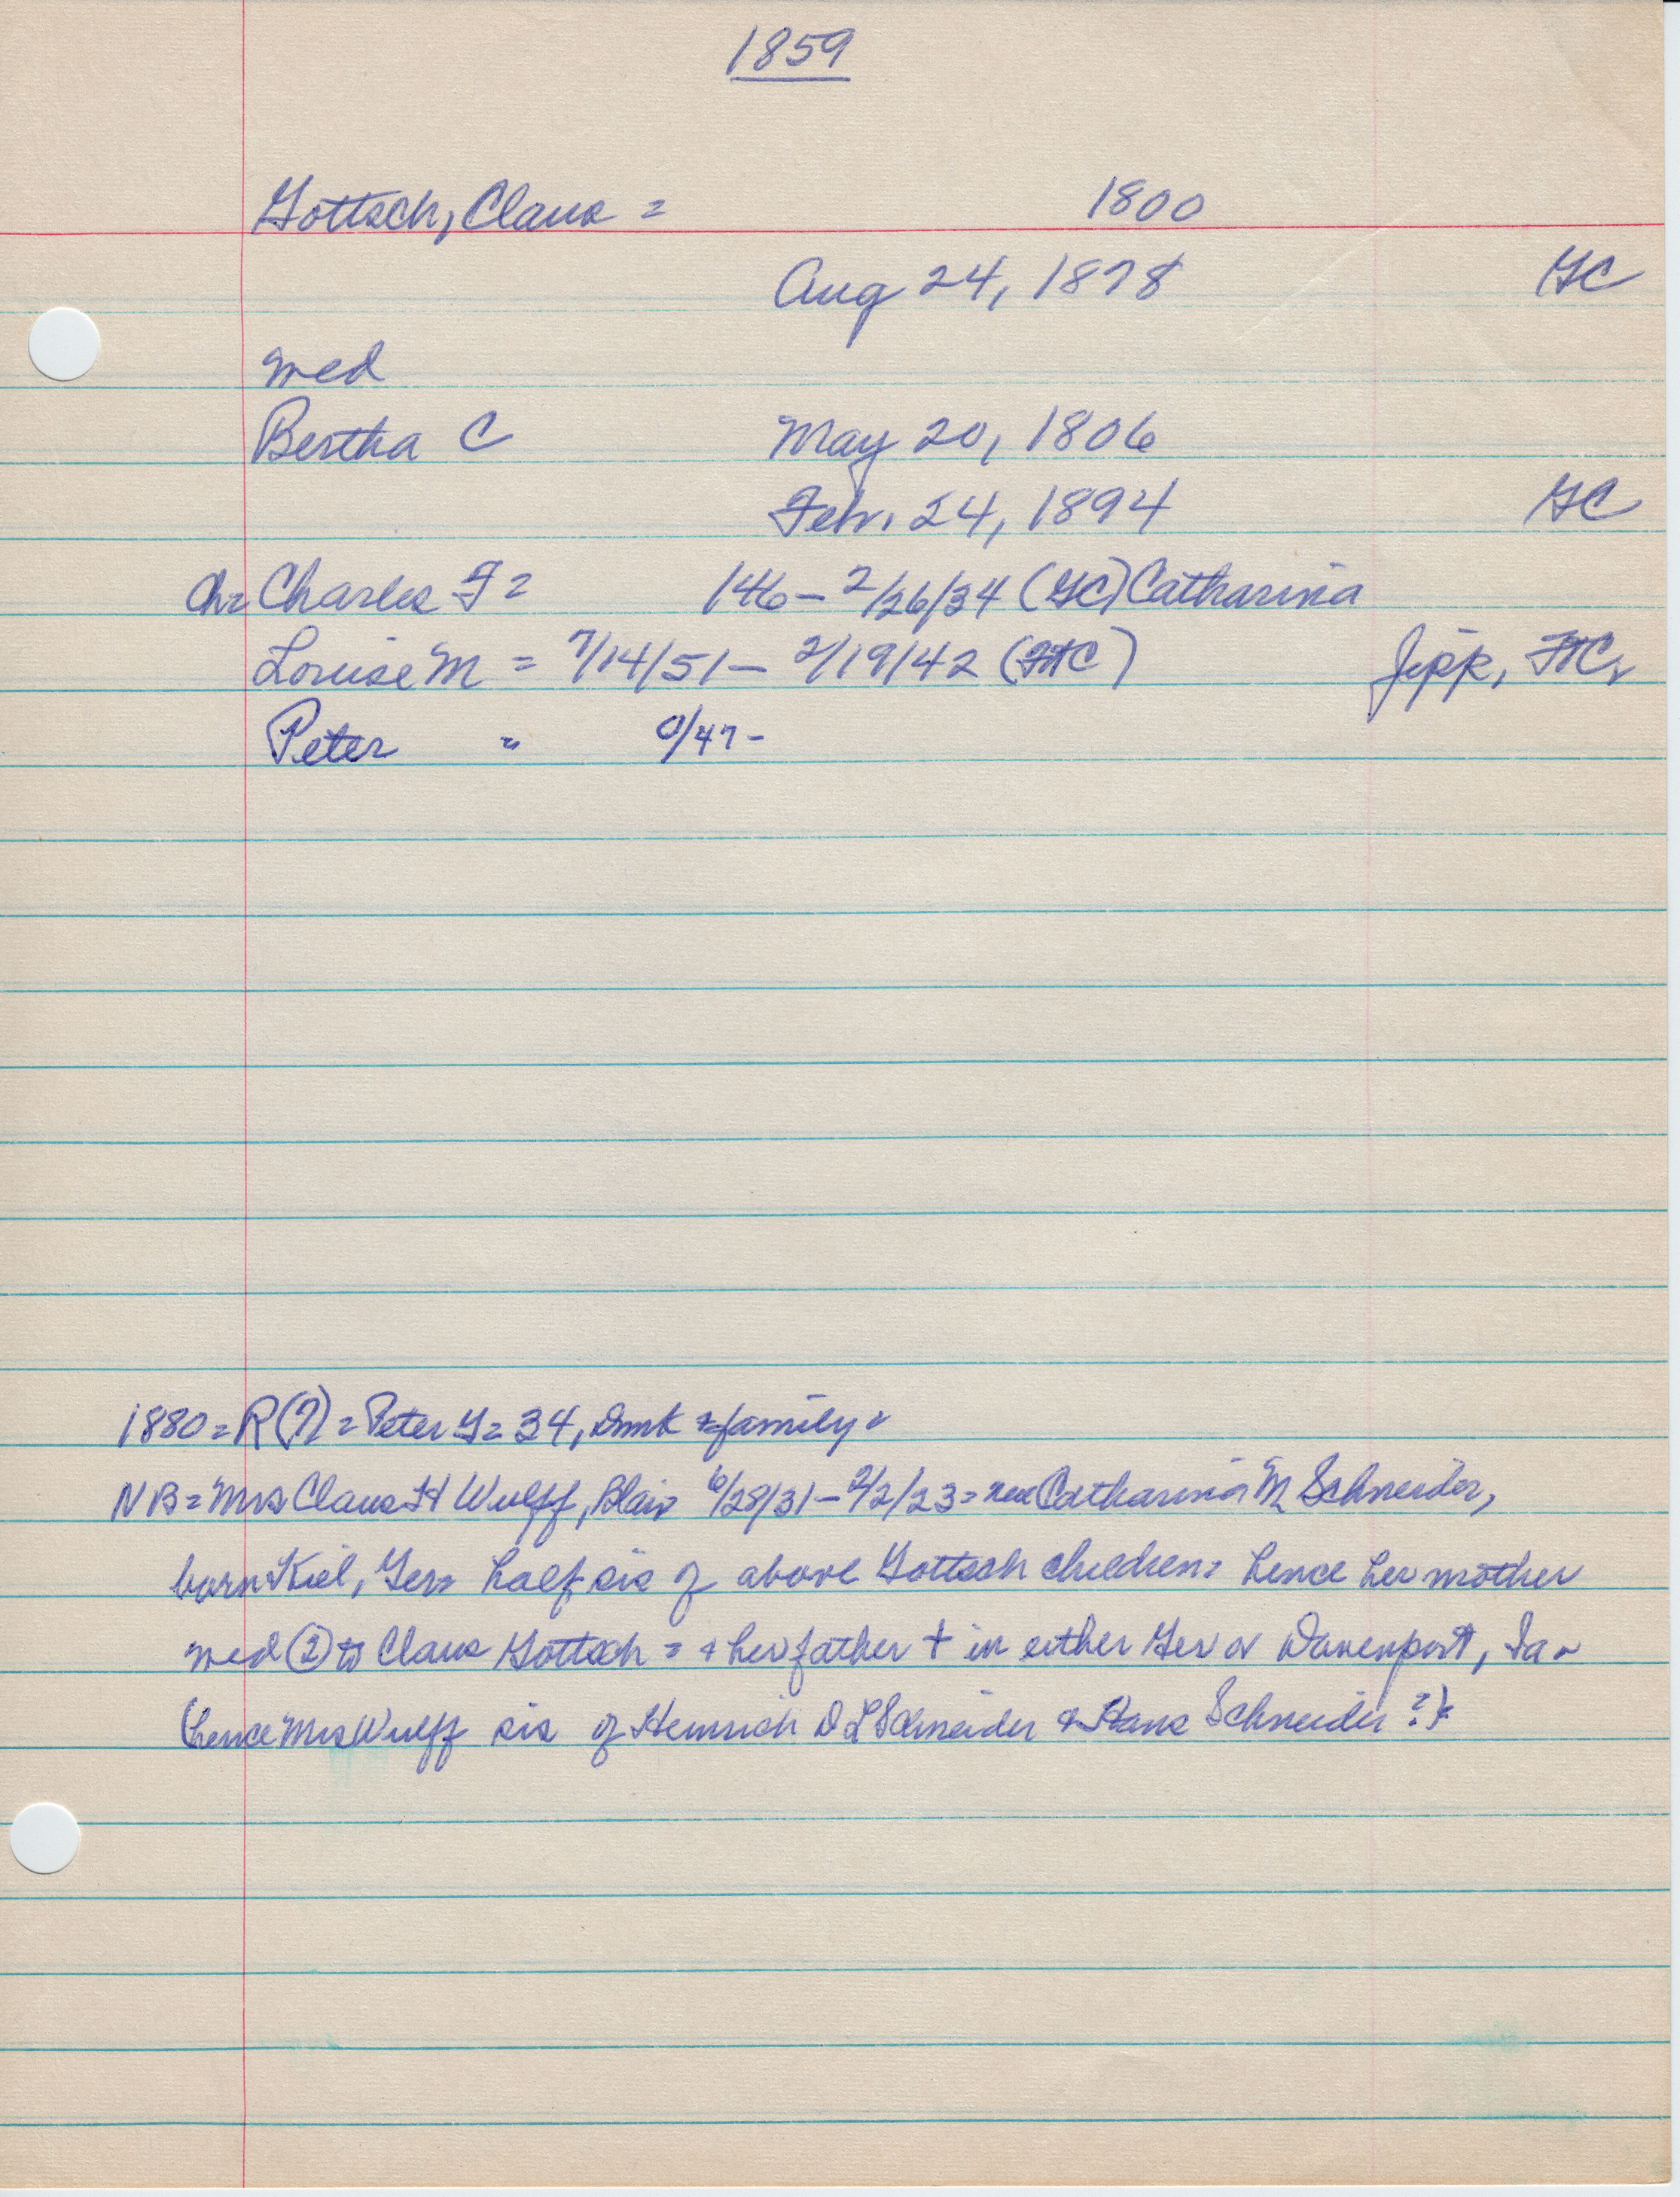 1859
Gottsch, Claus = 1800
Aug 24, 1878 GC
med
Bertha C May 20, 1806
Feb. 24, 1894 GC
Ch= Charles F= 146 - 2/26/34 (GC) Catharina
Louise M = 7/14/51 - 2/19/42 (FHC) Jipp, FHC
Peter " 0/47 -
1880 = R(7) = Peter G = 34, Dmk + family =
NB = Mrs Claus H Wulff, Blair 6/28/31 - 2/2/23 = nee Catharina M Schneider,
born Kiel, Ger= half sis of above Gottsch children = hence her mother
med (2) to Claus Gottsch = + her father † in either Ger or Davenport, Ia -
(hence Mrs Wulff sis of Heinrich D L Schneider + Hans Schneider ?)